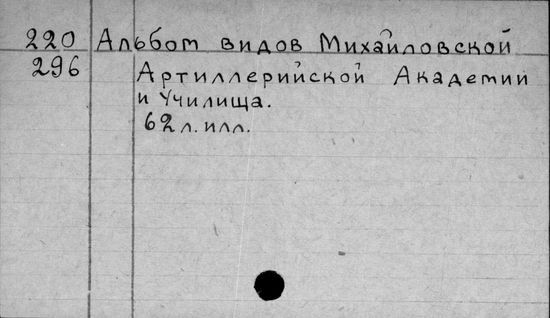 220 Альбом видов Михайловской
296 Артиллерийской Академии
и Училища.
62 л. илл.